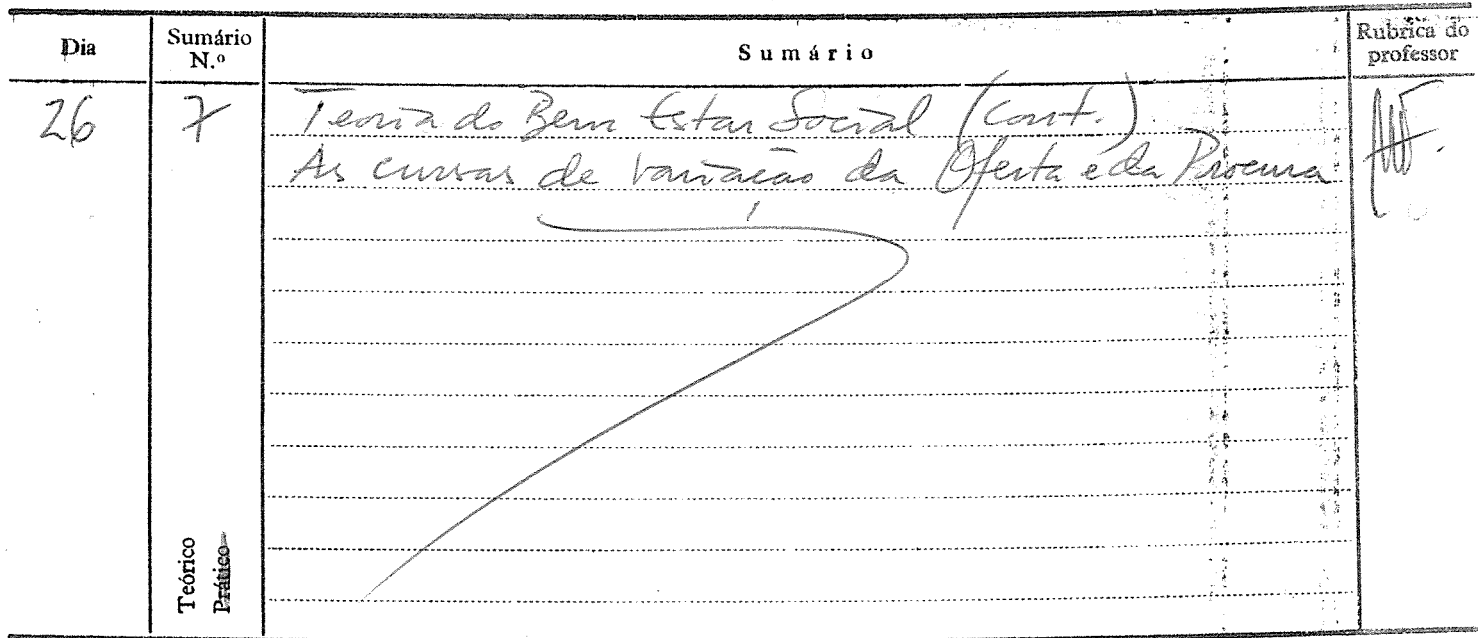 Dia Sumário N.º Sumário Rubrica do professor
26 7 Teoria do Bem Estar Social (Cont.)
As curvas de variação da Oferta e da Procura
Teórico
Prático